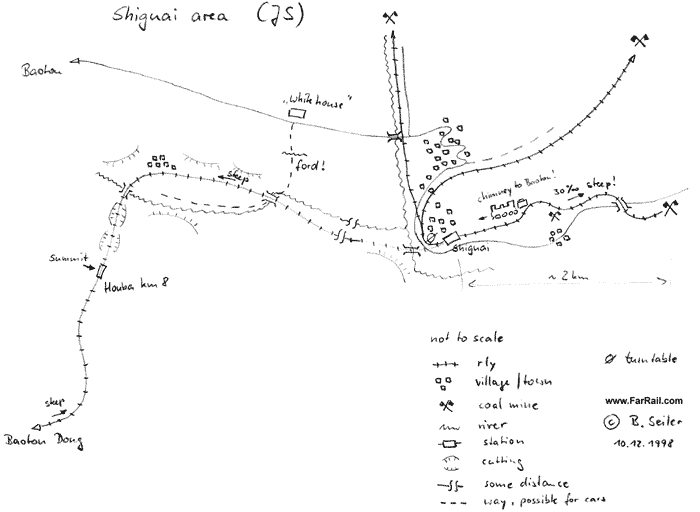 Shiguai area (JS)
Baotou
"White house"
ford!
steep
chimney to Baotou!
30‰ steep!
Shiguai
summit
Houba km 8
~ 2 km
steep
Baotou Dong
not to scale
rly
turntable
village/town
coal mine
www.FarRail.com
river
© B. Seiler
station
10.12.1998
cutting
some distance
way, possible for cars